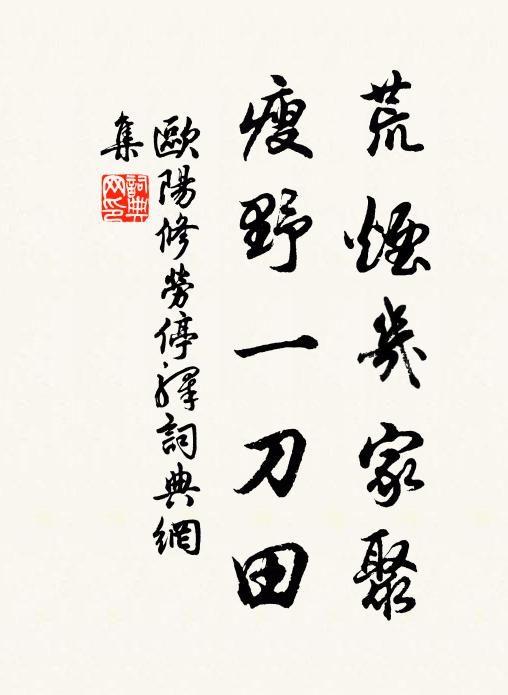 荒煙幾家聚
瘦野一刀田
歐陽修勞停驛詞典網
集
詞典网印